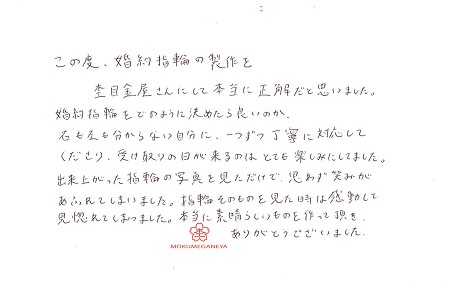 この度、婚約指輪の製作を
杢目金屋さんにして本当に正解だと思いました。
婚約指輪をどのように決めたら良いのか、
右も左も分からない自分に、一つずつ丁寧に対応して
くださり、受け取りの日が来るのはとても楽しみにしてました。
出来上がった指輪の写真を見ただけで、思わず笑みが
あふれてしまいました。指輪そのものを見た時は感動して
見惚れてしまいました。本当に素晴らしいものを作って頂き、
ありがとうございました。
MOKUMEGANEYA